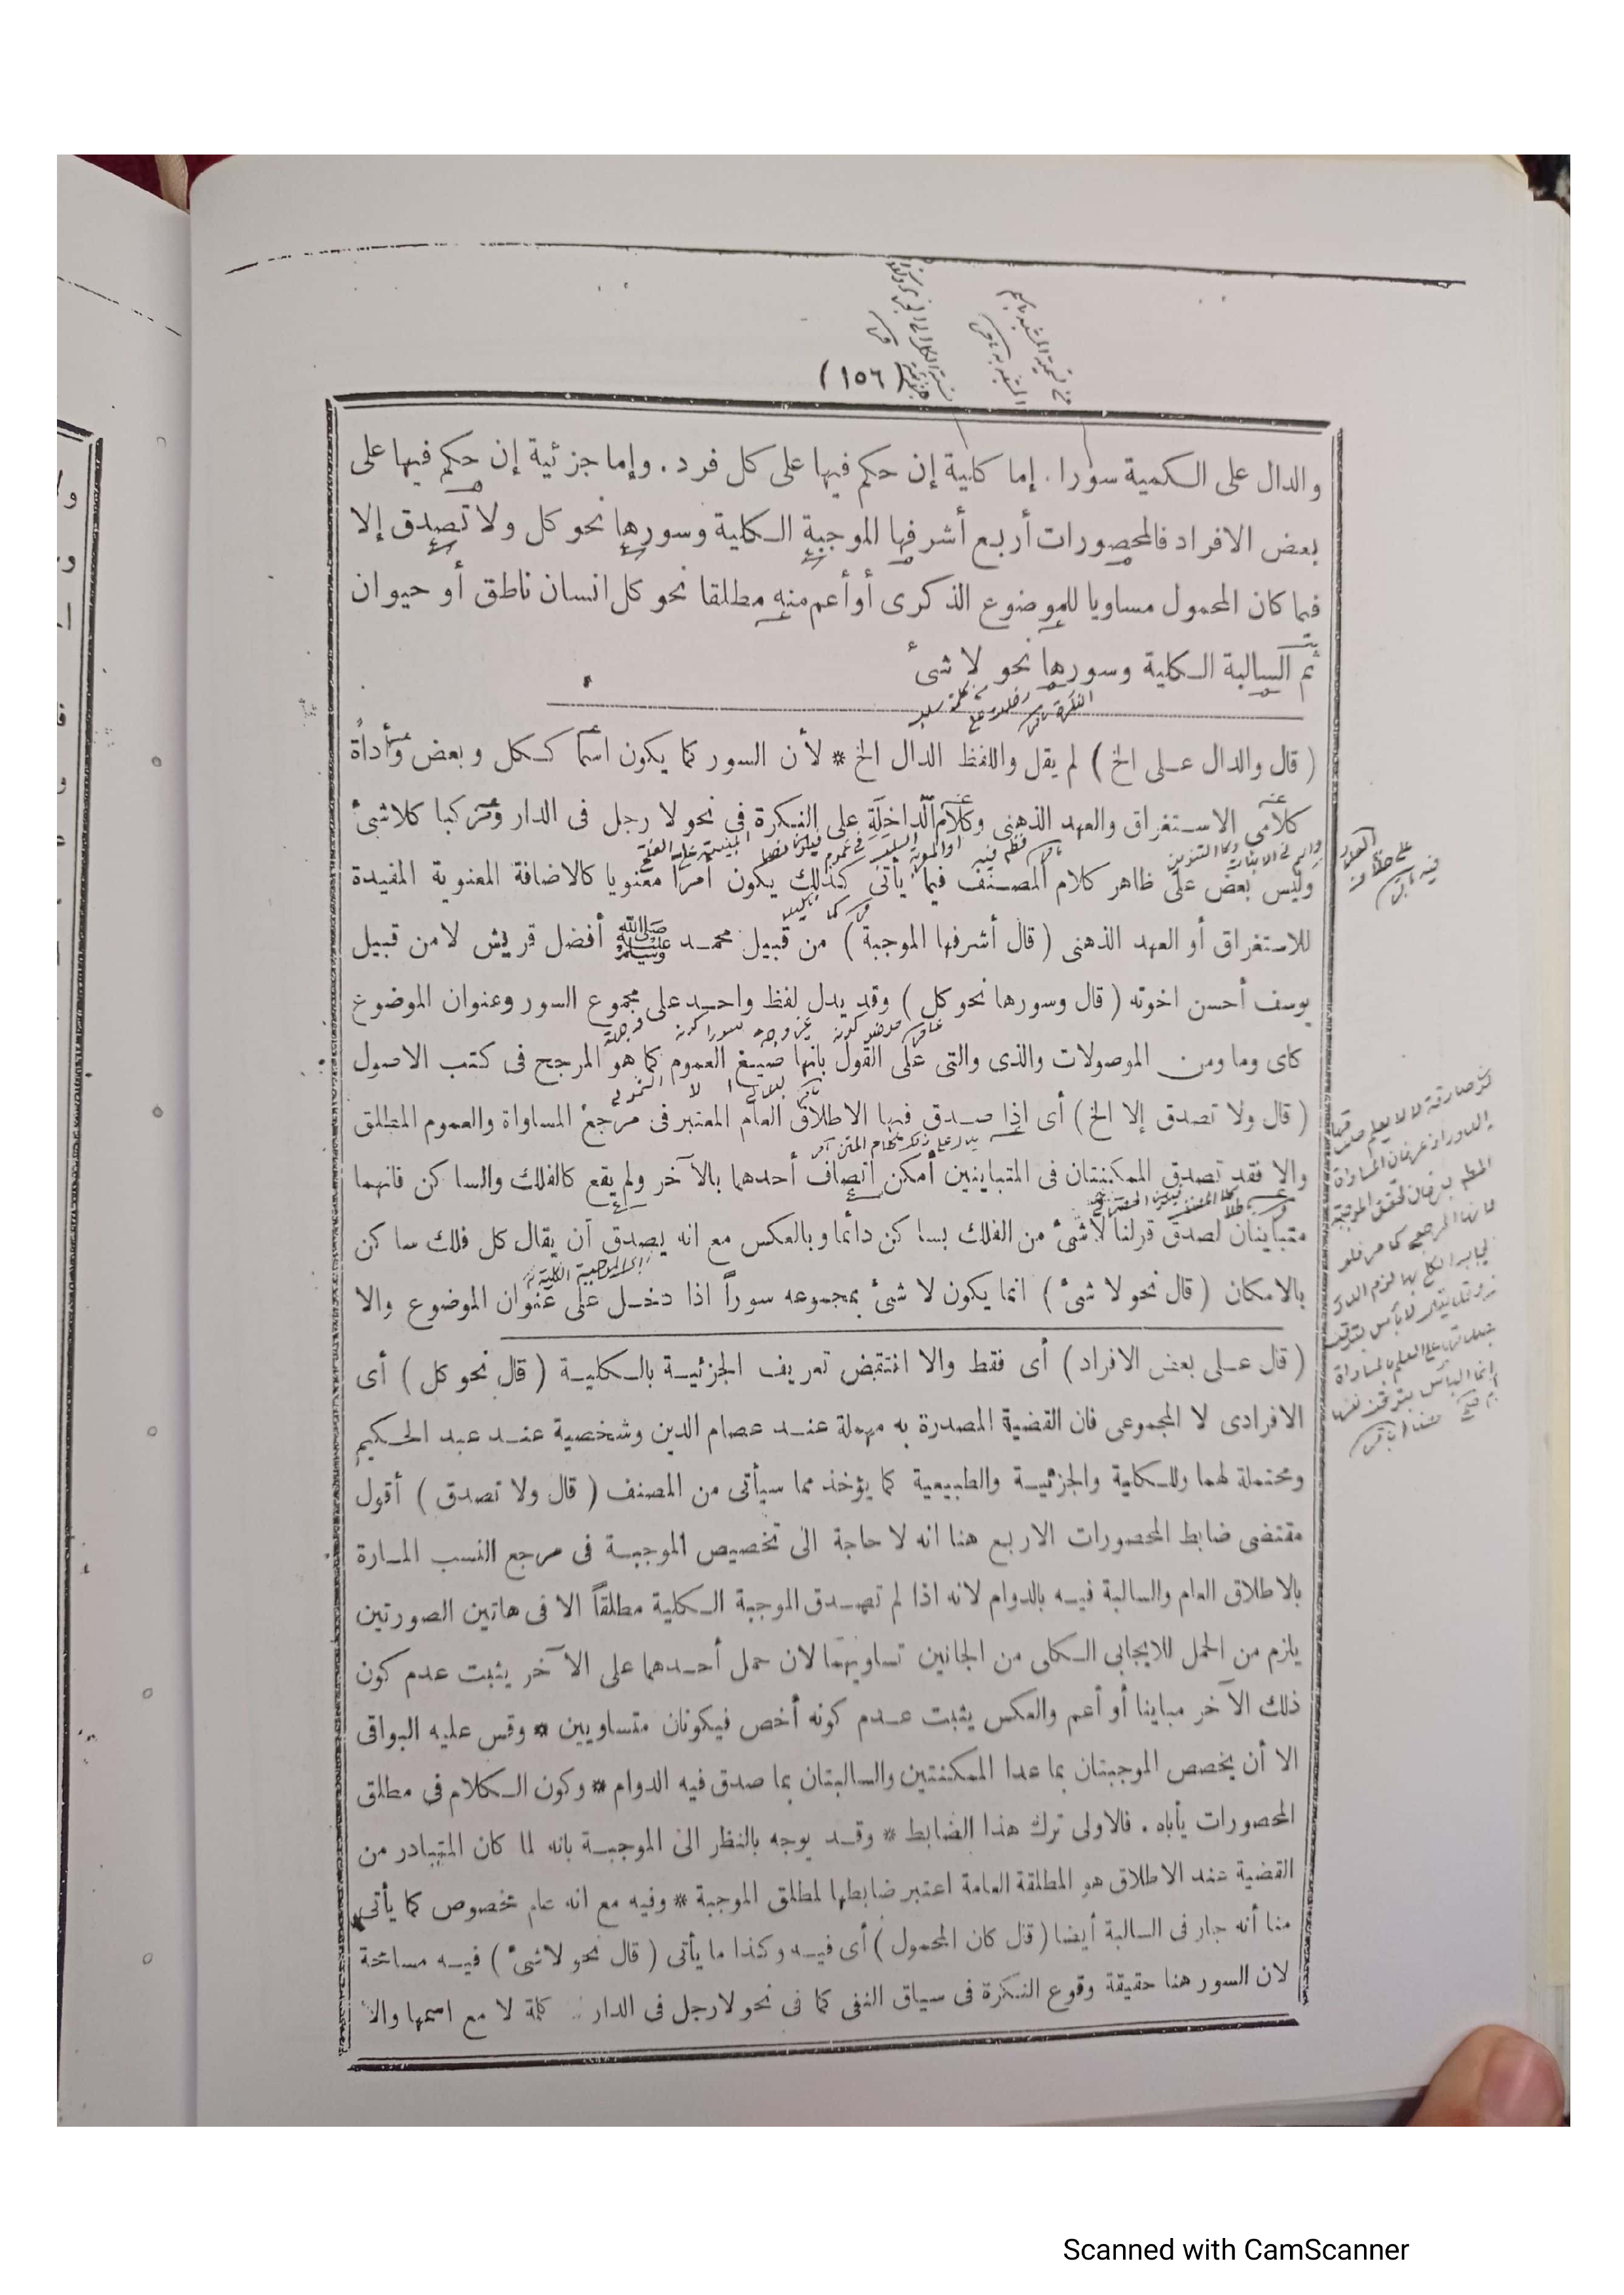 (١٥٦)
والدال على الكمية سورا. إما كلية إن حكم فيها على كل فرد. وإما جزئية إن حكم فيها على
بعض الافراد فالمحصورات أربع أشرفها الموجبة الكلية وسورها نحو كل ولا تصدق إلا
فيما كان المحمول مساويا للموضوع الذكرى أو أعم منه مطلقا نحو كل انسان ناطق أو حيوان
ثم السالبة الكلية وسورها نحو لا شئ
(قال والدال على الخ) لم يقل واللفظ الدال الخ * لأن السور كما يكون اسما ككل وبعض وأداة
كلامى الاستغراق والعهد الذهنى وكلام الداخلة على النكرة فى نحو لا رجل فى الدار ومركبا كلا شئ
وليس بعض على ظاهر كلام المصنف فيما يأتى كذلك يكون أمرا معنويا كالاضافة المعنوية المفيدة
للاستغراق أو العهد الذهنى (قال أشرفها الموجبة) من قبيل محمد ﷺ أفضل قريش لا من قبيل
يوسف أحسن اخوته (قال وسورها نحو كل) وقد يدل لفظ واحد على مجموع السور وعنوان الموضوع
كاى وما ومن الموصولات والذى والتى على القول بانها صيغ العموم كما هو المرجح فى كتب الاصول
(قال ولا تصدق إلا الخ) أى اذا صدق فيها الاطلاق العام المعتبر فى مرجع المساواة والعموم المطلق
والا فقد تصدق الممكنتان فى المتباينين أمكن اتصاف أحدهما بالآخر ولم يقع كالفلك والساكن فانهما
متباينان لصدق قولنا لا شئ من الفلك بساكن دائما وبالعكس مع انه يصدق أن يقال كل فلك ساكن
بالامكان (قال نحو لا شئ) انما يكون لا شئ بمجموعه سوراً اذا دخل على عنوان الموضوع والا
(قال على بعض الافراد) أى فقط والا انتقض تعريف الجزئية بالكلية (قال نحو كل) أى
الافرادى لا المجموعى فان القضية المصدرة به مهملة عند عصام الدين وشخصية عند عبد الحكيم
ومحتملة لهما وللكلية والجزئية والطبيعية كما يؤخذ مما سيأتى من المصنف (قال ولا تصدق) أقول
مقتضى ضابط المحصورات الاربع هنا انه لا حاجة الى تخصيص الموجبة فى مرجع النسب المارة
بالاطلاق العام والسالبة فيه بالدوام لانه اذا لم تصدق الموجبة الكلية مطلقاً الا فى هاتين الصورتين
يلزم من الحمل للايجابى الكلى من الجانبين تساويهما لان حمل أحدهما على الآخر يثبت عدم كون
ذلك الآخر مباينا أو أعم والعكس يثبت عدم كونه أخص فيكونان متساويين * وقس عليه البواقى
الا أن يخصص الموجبتان بما عدا الممكنتين والسالبتان بما صدق فيه الدوام * وكون الكلام فى مطلق
المحصورات يأباه. فالاولى ترك هذا الضابط * وقد يوجه بالنظر الى الموجبة بانه لما كان المتبادر من
القضية عند الاطلاق هو المطلقة العامة اعتبر ضابطها لمطلق الموجبة * وفيه مع انه عام مخصوص كما يأتى
منا أنه جار فى السالبة أيضا (قال كان المحمول) أى فيه وكذا ما يأتى (قال نحو لا شئ) فيه مسامحة
لان السور هنا حقيقة وقوع النكرة فى سياق النفى كما فى نحو لا رجل فى الدار كلمة لا مع اسمها والا
Scanned with CamScanner